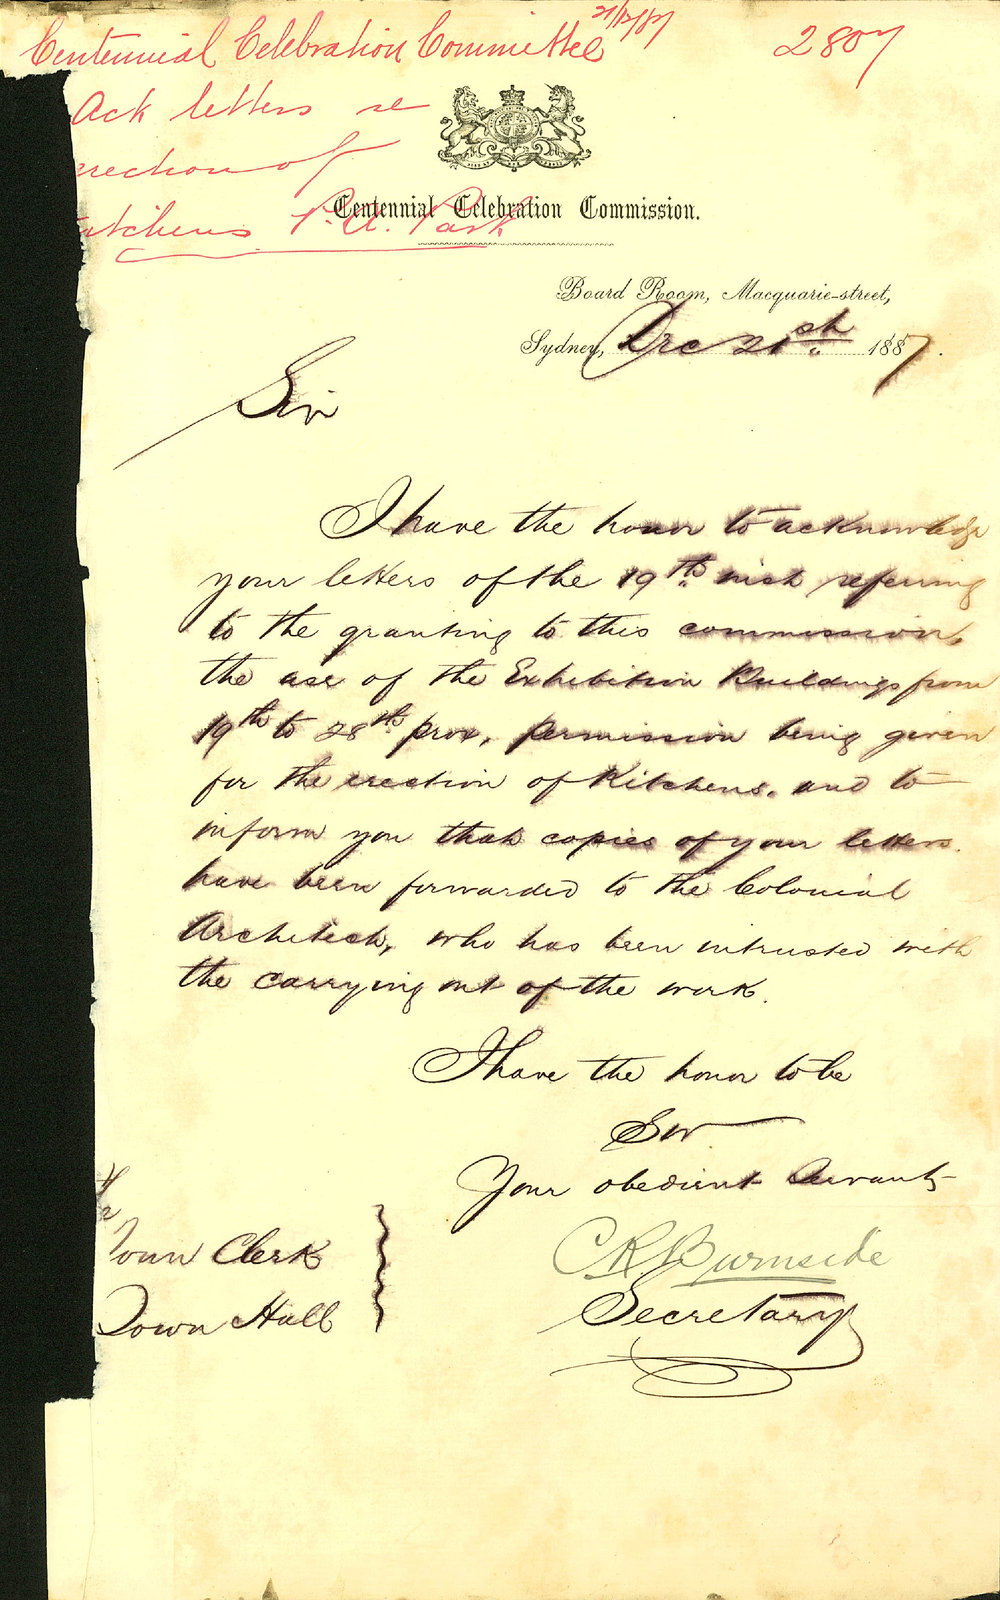 Centennial Celebration Committee 21/12/87
2807
Ack letters re
rection of
itchens P. A. Park
Centennial Celebration Commission.
Board Room, Macquarie-street,
Sydney, Dec 21st 1887.
Sir
I have the honor to acknowledge
your letters of the 19th inst referring
to the granting to this commission,
the use of the Exhibition Buildings from
19th to 28th prox, permission being given
for the erection of Kitchens, and to
inform you that copies of your letters
have been forwarded to the Colonial
Architect, who has been intrusted with
the carrying out of the work.
I have the honor to be
Sir
Your obedient Servant
C R Burnside
Secretary
Town Clerk
Town Hall